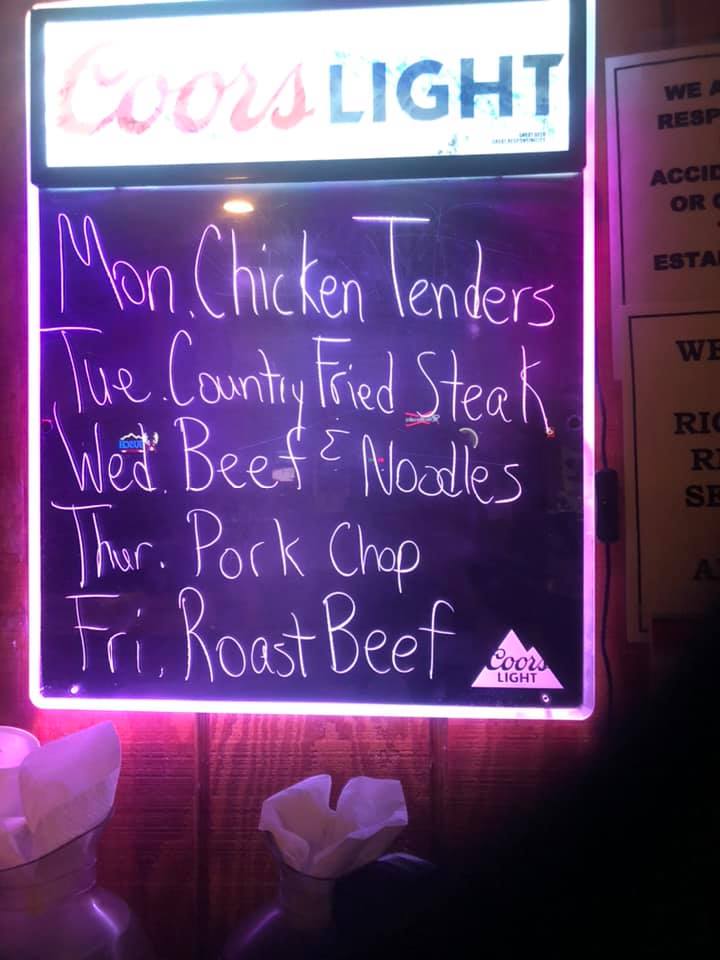 Coors LIGHT
Mon. Chicken Tenders
Tue. Country Fried Steak
Wed. Beef & Noodles
Thur. Pork Chop
Fri. Roast Beef
Coors
LIGHT
WE
RESP
ACCID
OR
ESTA
WE
RI
SE